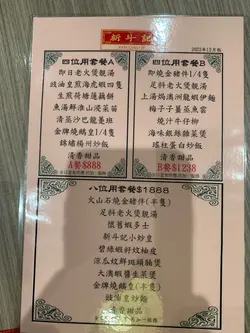 新斗記
2022年12月版
四位用套餐A
即日老火煲靚湯
豉油皇煎海虎蝦四隻
生煎荷塘蓮藕餅
魚湯鮮淮山浸菜苗
清蒸沙巴龍躉班
金牌燒鵝皇1/4隻
錦繡楊州炒飯
清香甜品
A餐$888
四位用套餐B
即燒金豬件1/4隻
足料老火煲靚湯
上湯焗澳州龍蝦伊麵
梅子子薑蒸魚雲
燒汁牛仔柳
海味銀絲雜菜煲
瑤柱蛋白炒飯
清香甜品
B餐$1238
八位用套餐$1888
火山石燒金豬件(半隻)
足料老火煲靚湯
懷舊蝦多士
新斗記小炒皇
碧綠蝦籽炆柚皮
涼瓜炆鮮斑頭腩煲
大澳蝦醬生菜煲
金牌燒鵝皇(半隻)
豉油皇炒麵
清香甜品